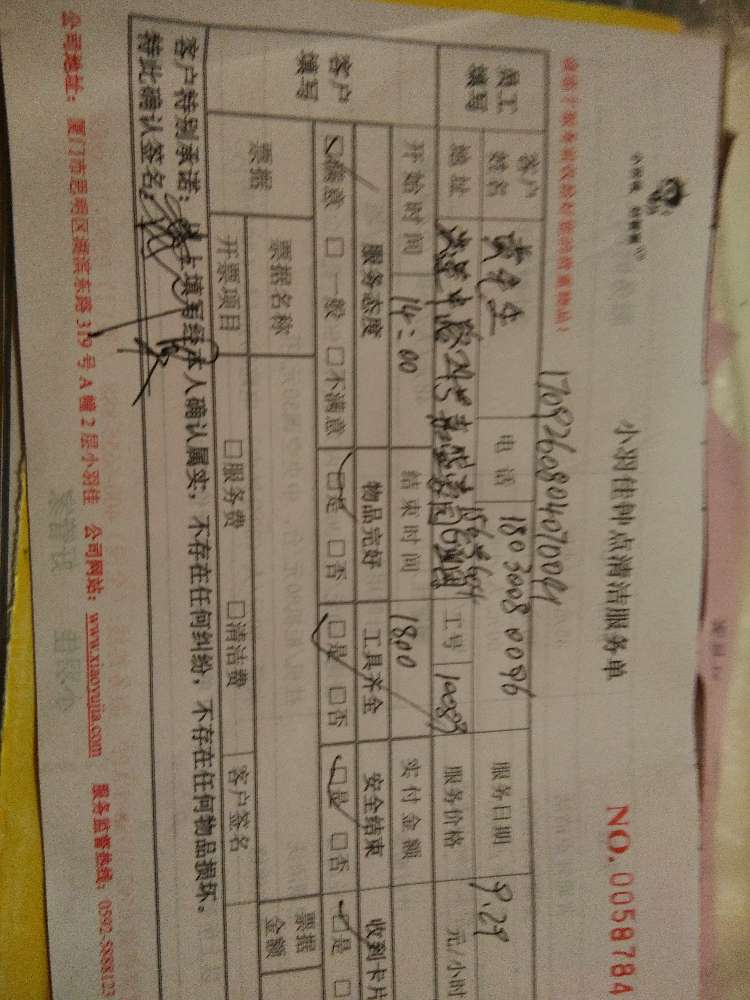 小羽佳钟点清洁服务单
NO.0058784
17092608040700
员工填写
客户姓名
黄先生
电话
18030080096
服务日期
9.29
地址
工号
10089
服务价格
元/小时
开始时间
14:00
结束时间
1800
实付金额
客户填写
服务态度
物品完好
工具齐全
安全结束
收到卡片
☑满意 □一般 □不满意
☑是 □否
☑是 □否
☑是 □否
☑是 □
票据
票据名称
票据金额
开票项目
□服务费 □清洁费
客户签名
客户特别承诺：以上填写经本人确认属实，不存在任何纠纷，不存在任何物品损坏。
特此确认签名：
公司地址： 厦门市思明区湖滨东路319号A幢2层小羽佳 公司网站：www.xiaoyujia.com 服务监督热线：0592-5888123